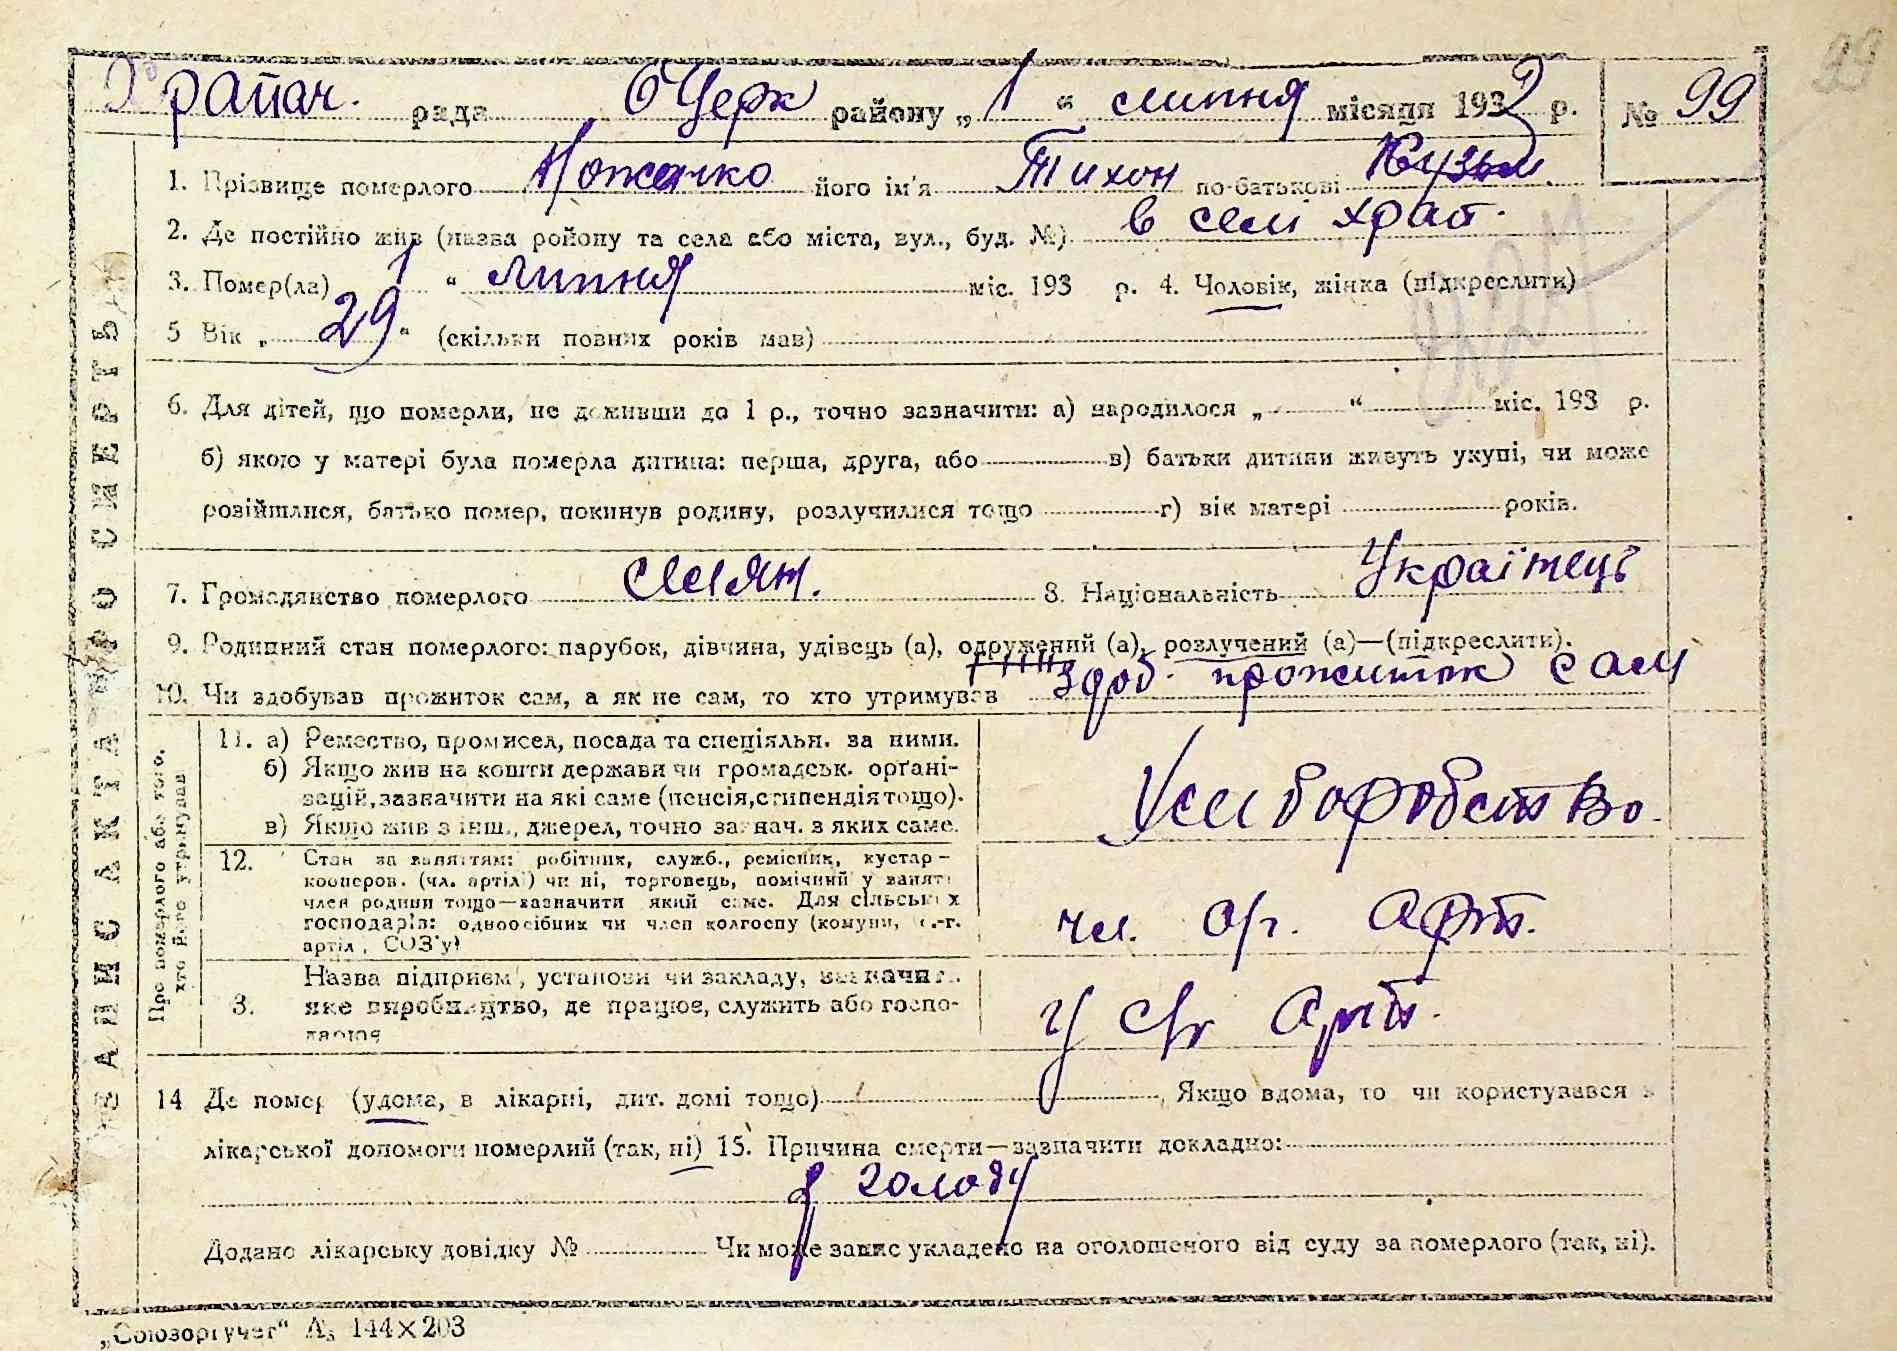 Храпач. рада БЦерк району „ 1 “ липня місяця 1933 р. № 99
1. Прізвище померлого його ім'я Тихон по-батькові Кузьм.
2. Де постійно жив (назва району та села або міста, вул., буд. №) в селі Храп.
3. Помер(ла) 1 “ липня міс. 193 р. 4. Чоловік, жінка (підкреслити)
5 Вік „ 29 “ (скільки повних років мав)
6. Для дітей, що померли, не доживши до 1 р., точно зазначити: а) народилося „ “ міс. 193 р.
б) якою у матері була померла дитина: перша, друга, або в) батьки дитини живуть укупі, чи може
розійшлися, батько помер, покинув родину, розлучилися тощо г) вік матері років.
7. Громадянство померлого селян. 8. Національність Українець
9. Родинний стан померлого: парубок, дівчина, удівець (а), одружений (а), розлучений (а)—(підкреслити).
10. Чи здобував прожиток сам, а як не сам, то хто утримував здоб. прожиток сам
ЗАПИС АКТА ПРО СМЕРТЬ
Про померлого або того, хто його утримував
11. а) Ремество, промисел, посада та спеціяльн. за ними.
б) Якщо жив на кошти держави чи громадськ. орґані-
зацій, зазначити на які саме (пенсія, стипендія тощо).
в) Якщо жив з інш., джерел, точно зазнач. з яких саме.
12. Стан за заняттям: робітник, служб., ремісник, кустар-
кооперов. (чл. артілі) чи ні, торговець, помічний у занят.
член родини тощо—зазначити який саме. Для сільських
господарів: одноосібник чи член колгоспу (комуни, с.-г.
артіл, СОЗ'у)
чл. с/г. Арт.
3. Назва підприєм, установи чи закладу, зазначит.
яке виробництво, де працює, служить або госпо-
дарює
у с/г Арт.
14 Де помер (удома, в лікарні, дит. домі тощо) Якщо вдома, то чи користувався з
лікарської допомоги померлий (так, ні) 15. Причина смерти—зазначити докладно:
з голоду
Додано лікарську довідку № Чи може запис укладено на оголошеного від суду за померлого (так, ні).
„Союзоргучет“ А5 144×203